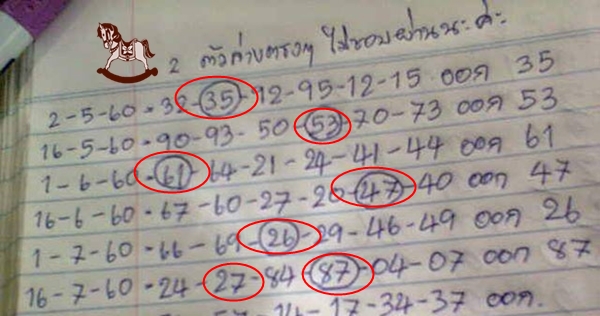 2 ตัวล่างตรงๆ ไม่ชอบผ่านนะค่ะ
2-5-60 - 32-35-12-95-12-15 ออก 35
16-5-60 - 90-93-50-53-70-73 ออก 53
1-6-60 - 61-64-21-24-41-44 ออก 61
16-6-60 - 67-60-27-20-47-40 ออก 47
1-7-60 - 66-69-26-29-46-49 ออก 26
16-7-60 - 24-27-84-87-04-07 ออก 87
14-17-34-37 ออก.